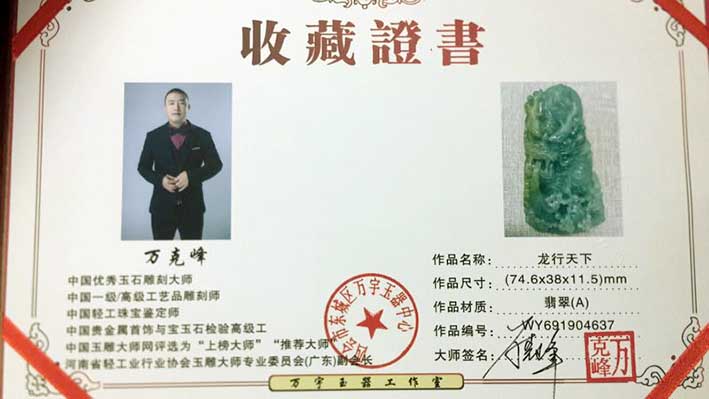 收藏證書
万克峰
中国优秀玉石雕刻大师
中国一级/高级工艺品雕刻师
中国轻工珠宝鉴定师
中国贵金属首饰与宝玉石检验高级工
中国玉雕大师网评选为“上榜大师”“推荐大师”
河南省轻工业行业协会玉雕大师专业委员会(广东)副会长
会市东城区万宇玉器中心
作品名称: 龙行天下
作品尺寸: (74.6x38x11.5)mm
作品材质: 翡翠(A)
作品编号: WY691904637
大师签名:
万克峰
万宇玉器工作室